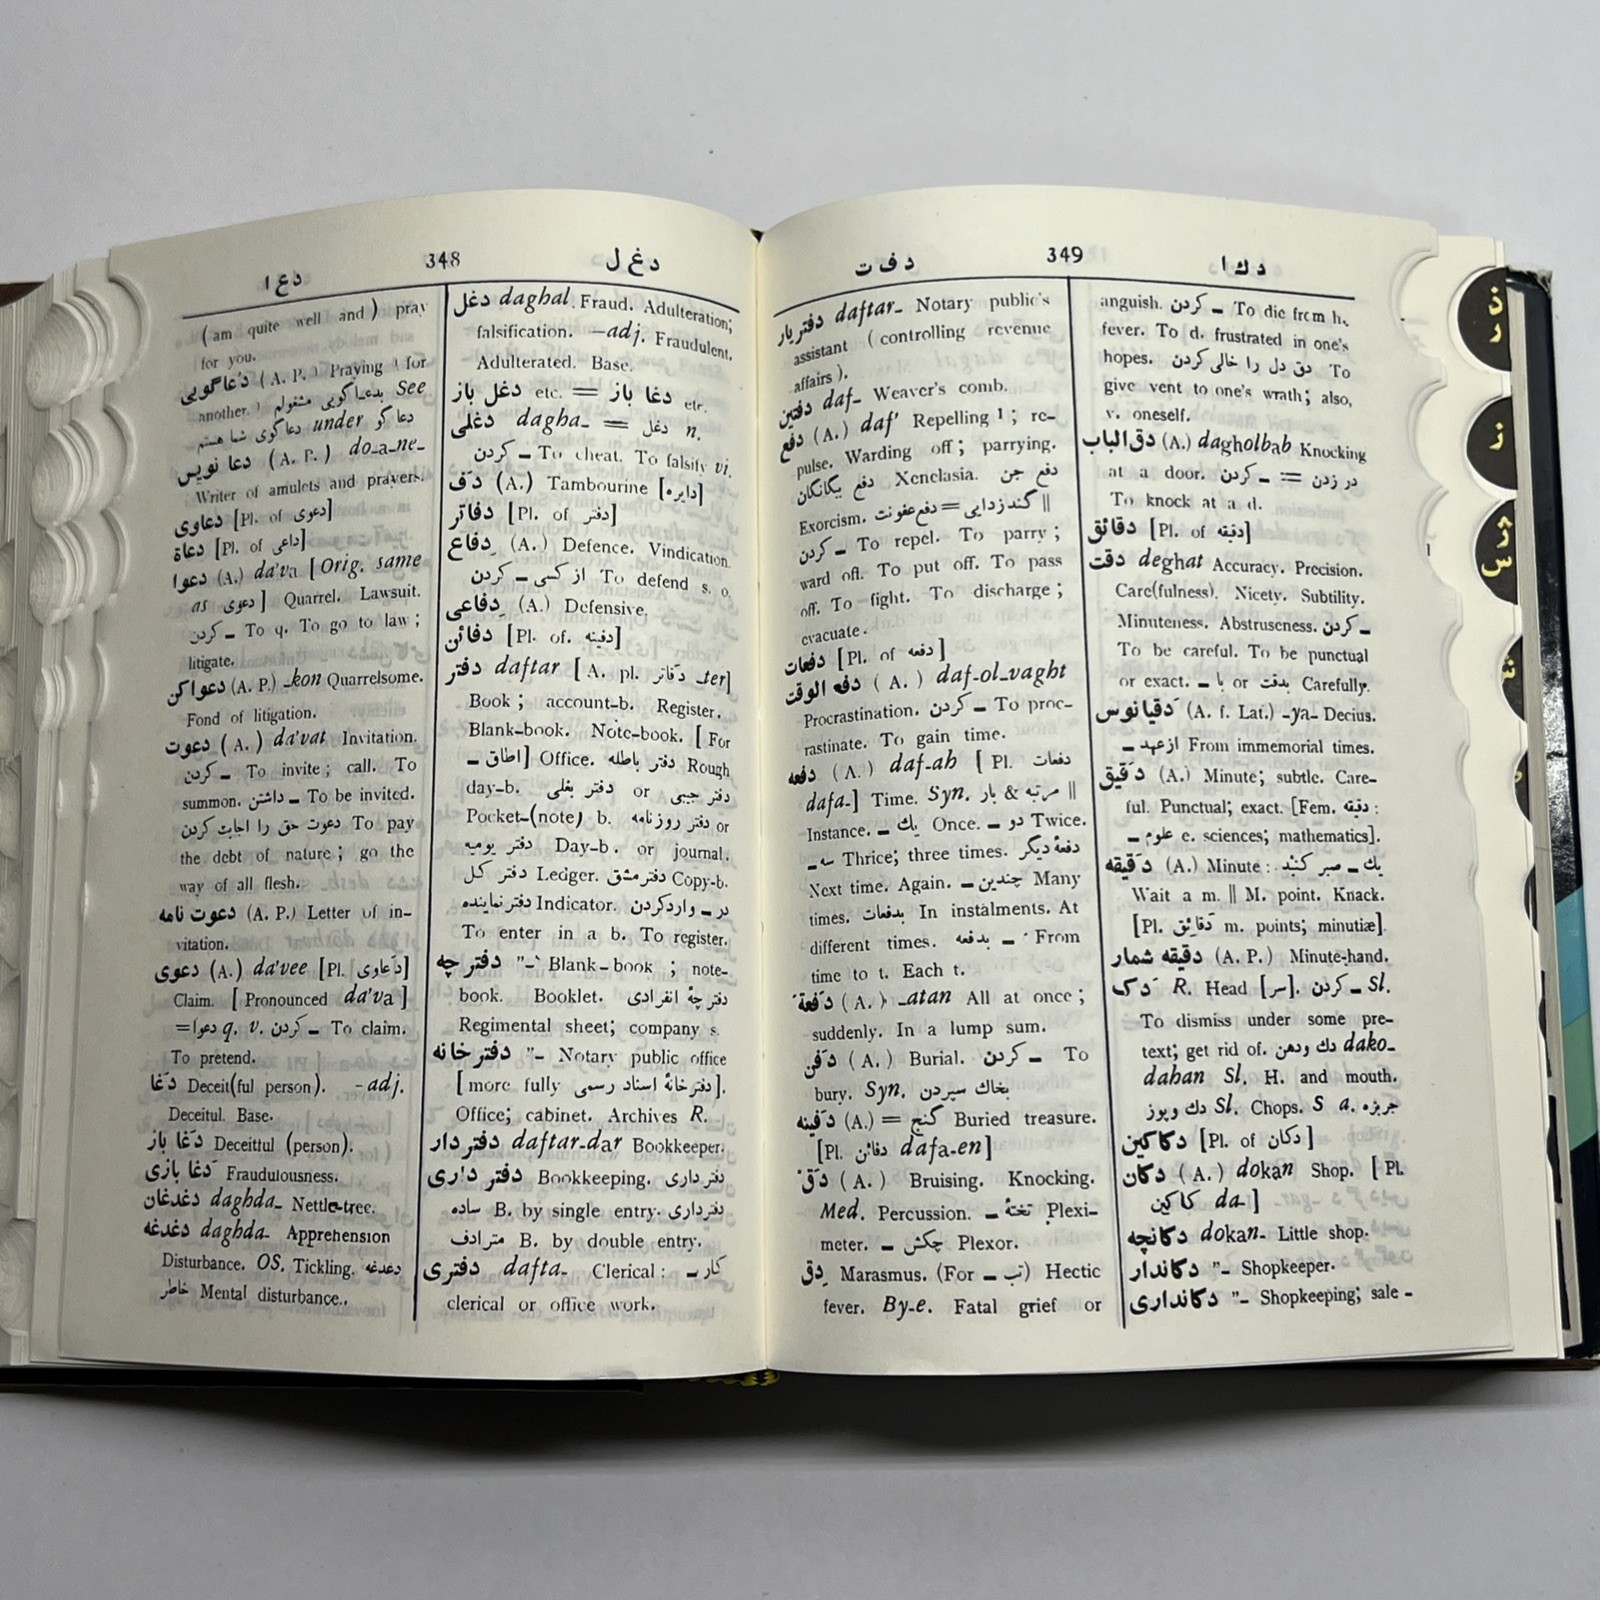 دعا
348
دغل
(am quite well and) pray
for you.
دعاگویی (A. P.) Praying (for
another.) بدعاگویی مشغولم See
دعاگوی شما هستم under دعاگو
دعا نویس (A. P.) do-a-ne-
Writer of amulets and prayers.
دعاوی [Pl. of دعوی]
دعاة [Pl. of داعی]
دعوا (A.) da'va [Orig. same
as دعوی] Quarrel. Lawsuit.
کردن – To q. To go to law;
litigate.
دعوا کن (A. P.) -kon Quarrelsome.
Fond of litigation.
دعوت (A.) da'vat Invitation.
کردن – To invite; call. To
summon. داشتن – To be invited.
دعوت حق را اجابت کردن To pay
the debt of nature; go the
way of all flesh.
دعوت نامه (A. P.) Letter of in-
vitation.
دعوی (A.) da'vee [Pl. دعاوی]
Claim. [Pronounced da'va]
=دعوا q. v. کردن – To claim.
To pretend.
دَغا Deceit(ful person). -adj.
Deceitul. Base.
دَغا باز Deceitful (person).
دَغا بازی Fraudulousness.
دغدغان daghda- Nettle-tree.
دغدغه daghda- Apprehension
Disturbance. OS. Tickling. دغدغه
خاطر Mental disturbance..
دغل daghal Fraud. Adulteration;
falsification. –adj. Fraudulent.
Adulterated. Base.
دغل باز etc. = دغا باز etc.
دغلی dagha- = دغل n.
کردن – To cheat. To falsify vi.
دَف (A.) Tambourine [دایره]
دفاتر [Pl. of دفتر]
دِفاع (A.) Defence. Vindication
از کسی – کردن To defend s. o.
دِفاعی (A.) Defensive.
دفائن [Pl. of. دفینه]
دفتر daftar [A. pl. دَفاتر -ter]
Book; account-b. Register.
Blank-book. Note-book. [For
اطاق –] Office. دفتر باطله Rough
day-b. دفتر بغلی or دفتر جیبی
Pocket-(note) b. دفتر روزنامه or
دفتر یومیه Day-b. or journal.
دفتر کل Ledger. دفتر مشق Copy-b.
دفتر نماینده Indicator. در – وارد کردن
To enter in a b. To register.
دفتر چه "-" Blank-book ; note-
book. Booklet. دفترچهٔ انفرادی
Regimental sheet; company s.
دفتر خانه "- Notary public office
[more fully دفترخانهٔ اسناد رسمی].
Office; cabinet. Archives R.
دفتر دار daftar-dar Bookkeeper.
دفتر داری Bookkeeping. دفترداری
ساده B. by single entry. دفترداری
مترادف B. by double entry.
دفتری dafta- Clerical: کار –
clerical or office work.
دفت
349
دکا
دفتر یار daftar- Notary public's
assistant (controlling revenue
affairs).
دفتین daf- Weaver's comb.
دفع (A.) daf' Repelling ¹; re-
pulse. Warding off; parrying.
دفع بیگانگان Xenelasia. دفع جن
Exorcism. گندزدایی = دفع عفونت ||
کردن – To repel. To parry;
ward off. To put off. To pass
off. To fight. To discharge;
evacuate.
دفعات [Pl. of دفعه]
دفع الوقت (A.) daf-ol-vaght
Procrastination. کردن – To proc-
rastinate. To gain time.
دفعه (A.) daf-ah [Pl. دفعات
dafa-] Time. Syn. بار & مرتبه ||
Instance. یك – Once. دو – Twice.
سه – Thrice; three times. دفعهٔ دیگر
Next time. Again. چندین – Many
times. بدفعات In instalments. At
different times. بدفعه – From
time to t. Each t.
دَفعةً (A.) -atan All at once;
suddenly. In a lump sum.
دَفن (A.) Burial. کردن – To
bury. Syn. بخاك سپردن
دَفینه (A.) = گنج Buried treasure.
[Pl. دفائن dafa-en]
دَقّ (A.) Bruising. Knocking.
Med. Percussion. تختهٔ – Plexi-
meter. چکش – Plexor.
دِق Marasmus. (For تب –) Hectic
fever. By-e. Fatal grief or
anguish. کردن – To die from h.
fever. To d. frustrated in one's
hopes. دق دل را خالی کردن To
give vent to one's wrath; also,
v. oneself.
دق الباب (A.) dagholbab Knocking
at a door. کردن – = در زدن
To knock at a d.
دقائق [Pl. of دقیقه]
دقت deghat Accuracy. Precision.
Care(fulness). Nicety. Subtility.
Minuteness. Abstruseness. کردن –
To be careful. To be punctual
or exact. با – or بدقت Carefully.
دَقیانوس (A. f. Lat.) -ya- Decius.
از عهد – From immemorial times.
دَقیق (A.) Minute; subtle. Care-
ful. Punctual; exact. [Fem. دقیقه:
علوم – e. sciences; mathematics].
دَقیقه (A.) Minute: یك – صبر کنید
Wait a m. || M. point. Knack.
[Pl. دَقائِق m. points; minutiæ].
دقیقه شمار (A. P.) Minute-hand.
دَك R. Head [سر]. کردن – Sl.
To dismiss under some pre-
text; get rid of. دك ودهن dako-
dahan Sl. H. and mouth.
دك وپوز Sl. Chops. S a. جربزه
دکاکین [Pl. of دکان]
دکان (A.) dokan Shop. [Pl.
کاکین da-]
دکانچه dokan- Little shop.
دکاندار "- Shopkeeper.
دکانداری "- Shopkeeping; sale-
ذ
ر
ز
ژ
س
ش